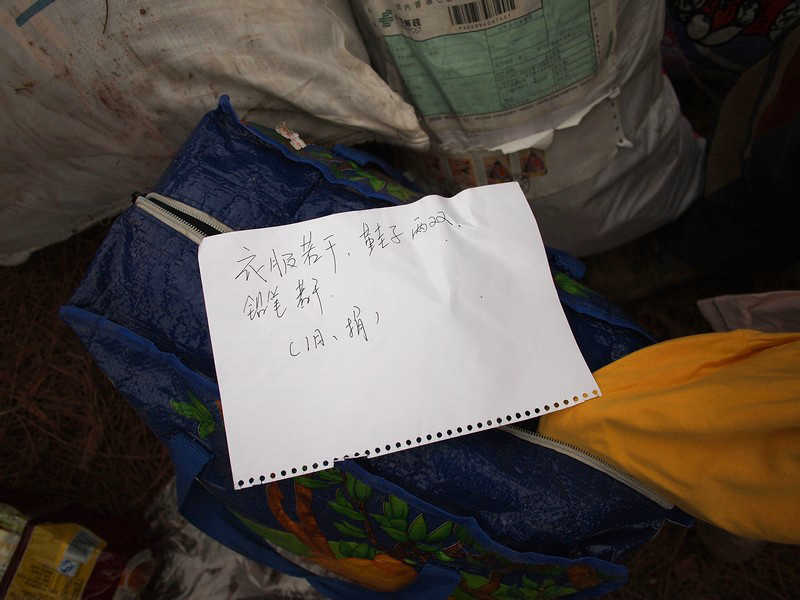 衣服若干、鞋子两双、
铅笔若干.
(旧、捐)